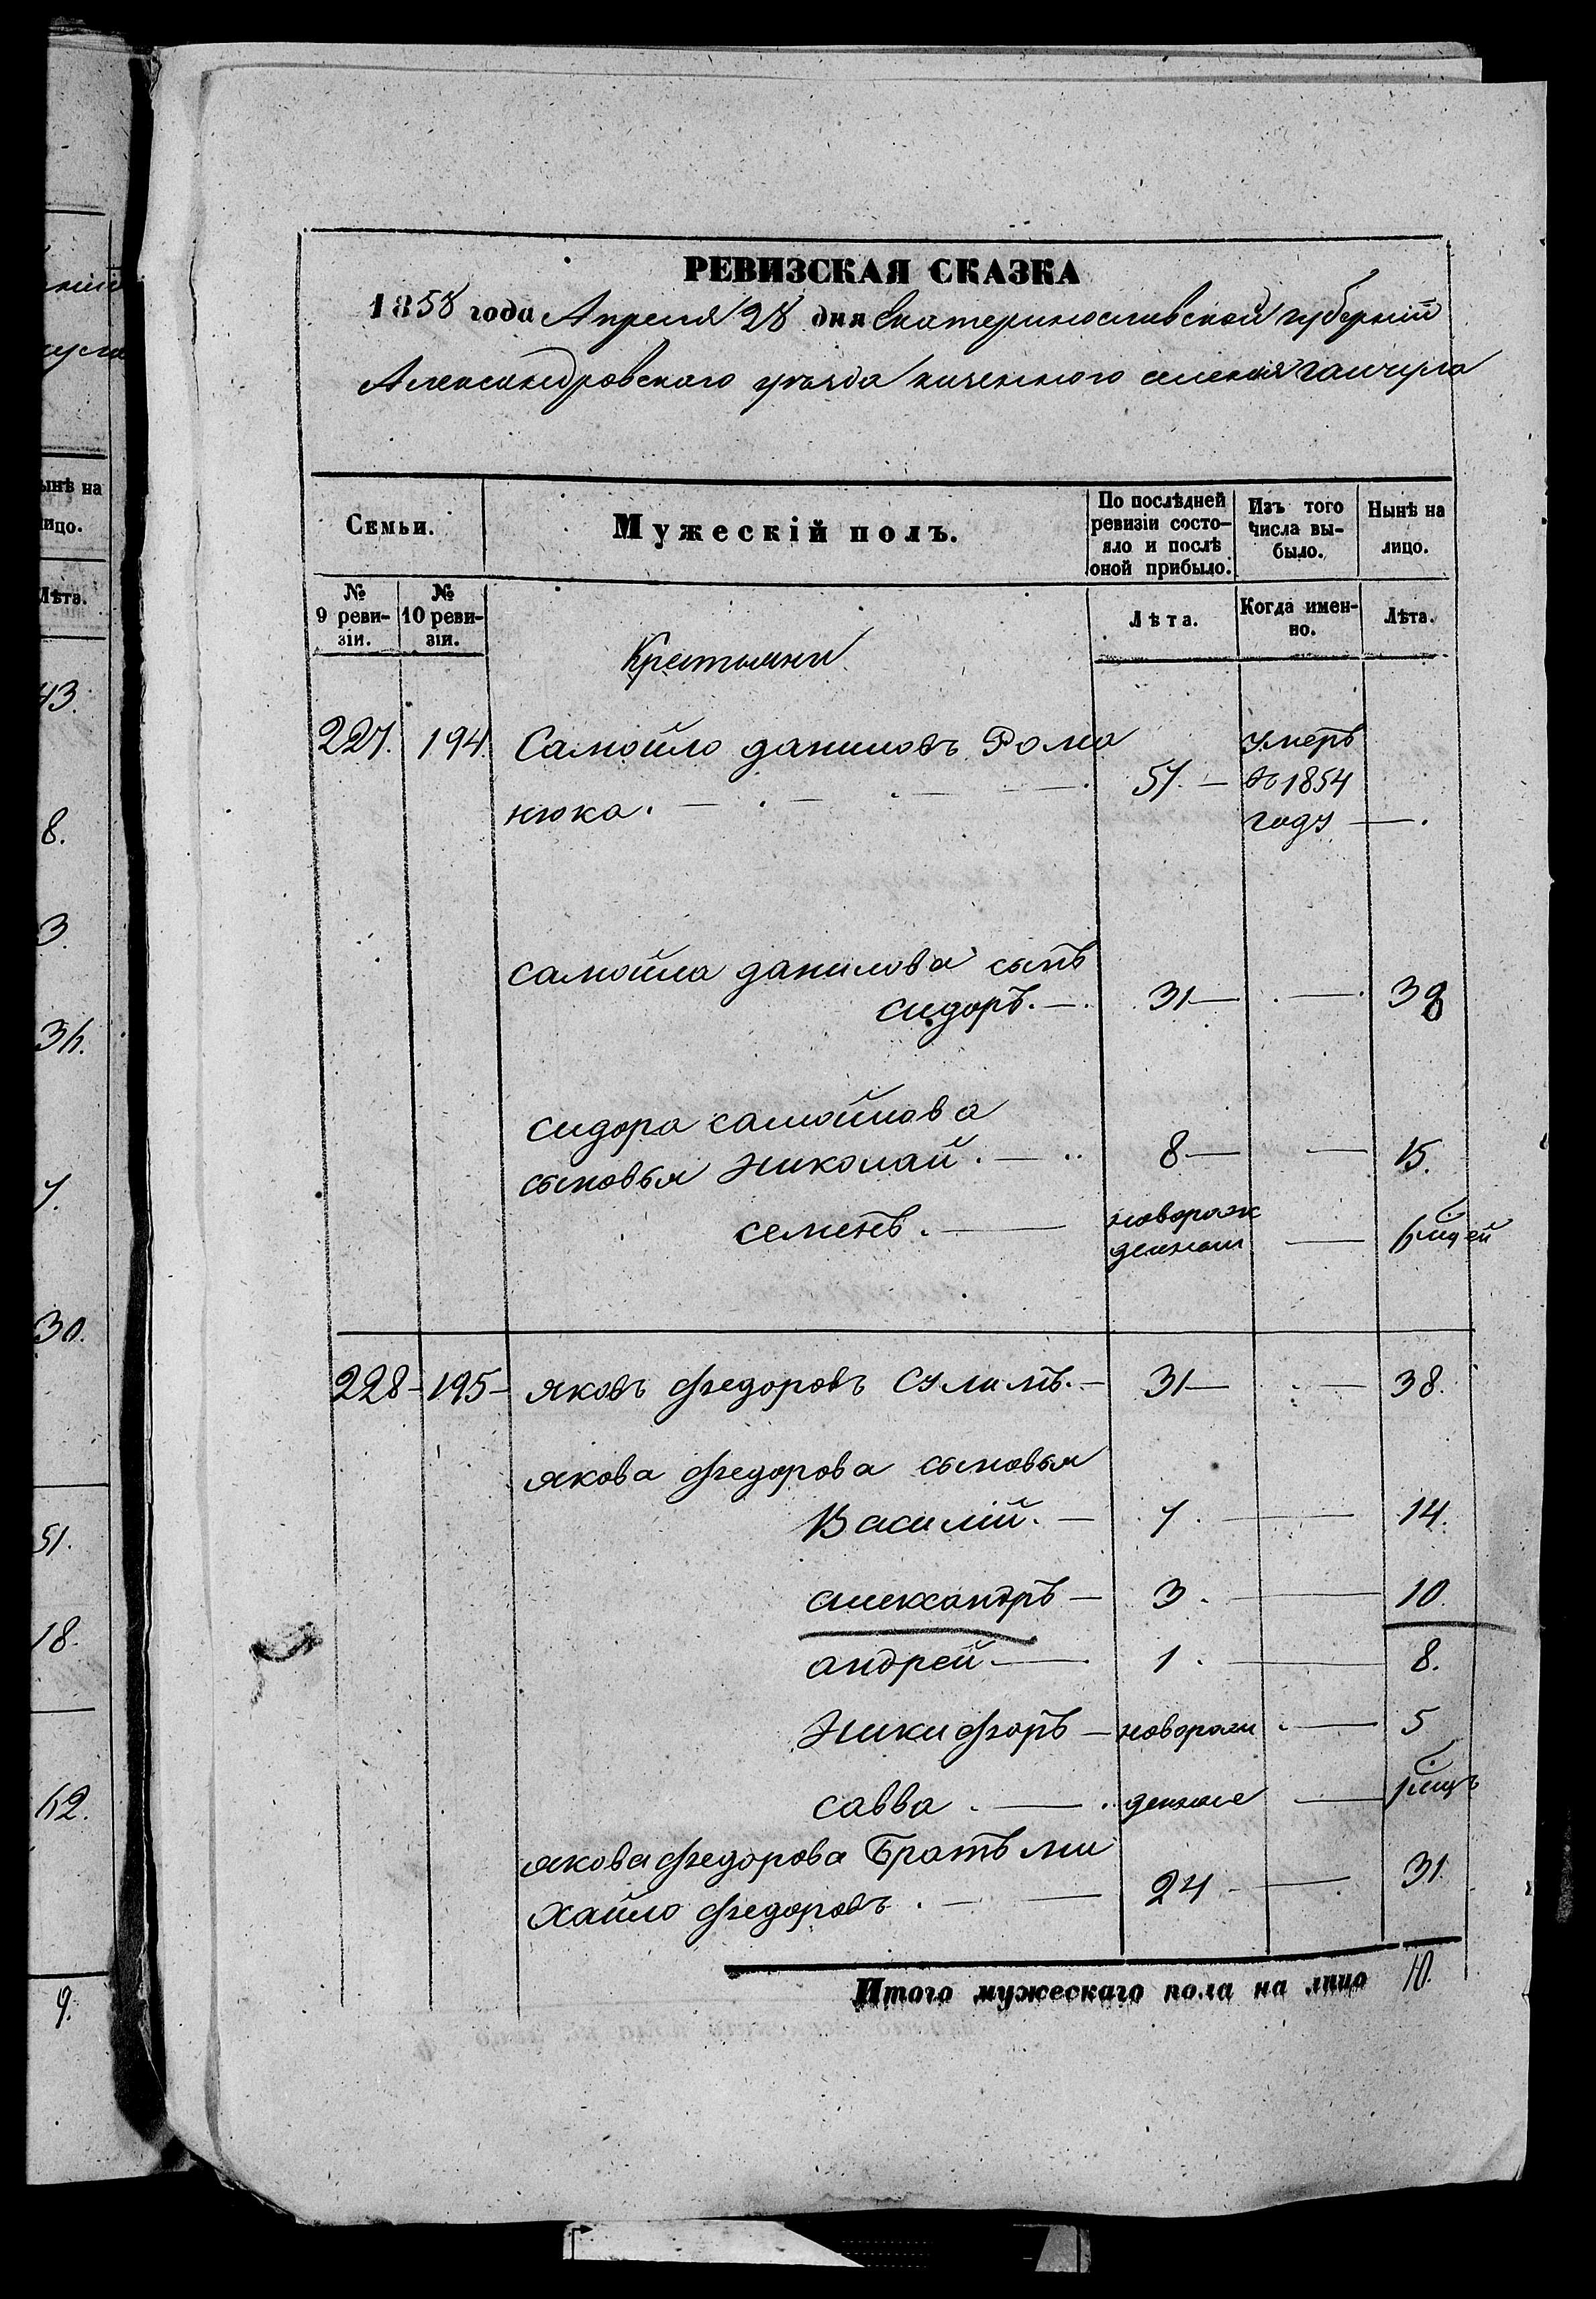 РЕВИЗСКАЯ СКАЗКА
1858 года Апреля 28 дня Екатеринославской губерніи
Александровского уезда казенного селения Гайчула
Семьи.
Мужескій полъ.
По послѣдней
ревизіи состо-
яло и послѣ
оной прибыло.
Изъ того
числа вы-
было.
Нынѣ на
лицо.
№
9 реви-
зіи.
№
10 реви-
зіи.
Лѣта.
Когда имен-
но.
Лѣта.
Крестьяни
227. 194. Самойло даниловъ Рома
нюка. 57. — умеръ
въ 1854
году — .
самойла данилова сынъ
сидоръ. — 31 — . — . 38
сидора самойлова
сыновья Николай. — 8 — — 15.
семенъ. — новорож
денной — 6 мцей
228 - 195 - яковъ федоровъ Сулимъ. — 31 — . — 38.
якова федорова сыновья
Василій. — 7. — 14.
александръ — 3. — 10.
андрей. — 1. — 8.
Никифоръ — новорож . — 5
савва . — . денные — 1 мцъ
якова федорова Братъ ми
хайло федоровъ . — 24 — 31.
Итого мужескаго пола на лицо 10.
ынѣ на
ицо.
Лѣта.
43.
8.
3.
36.
7.
30.
51.
18.
62.
9.